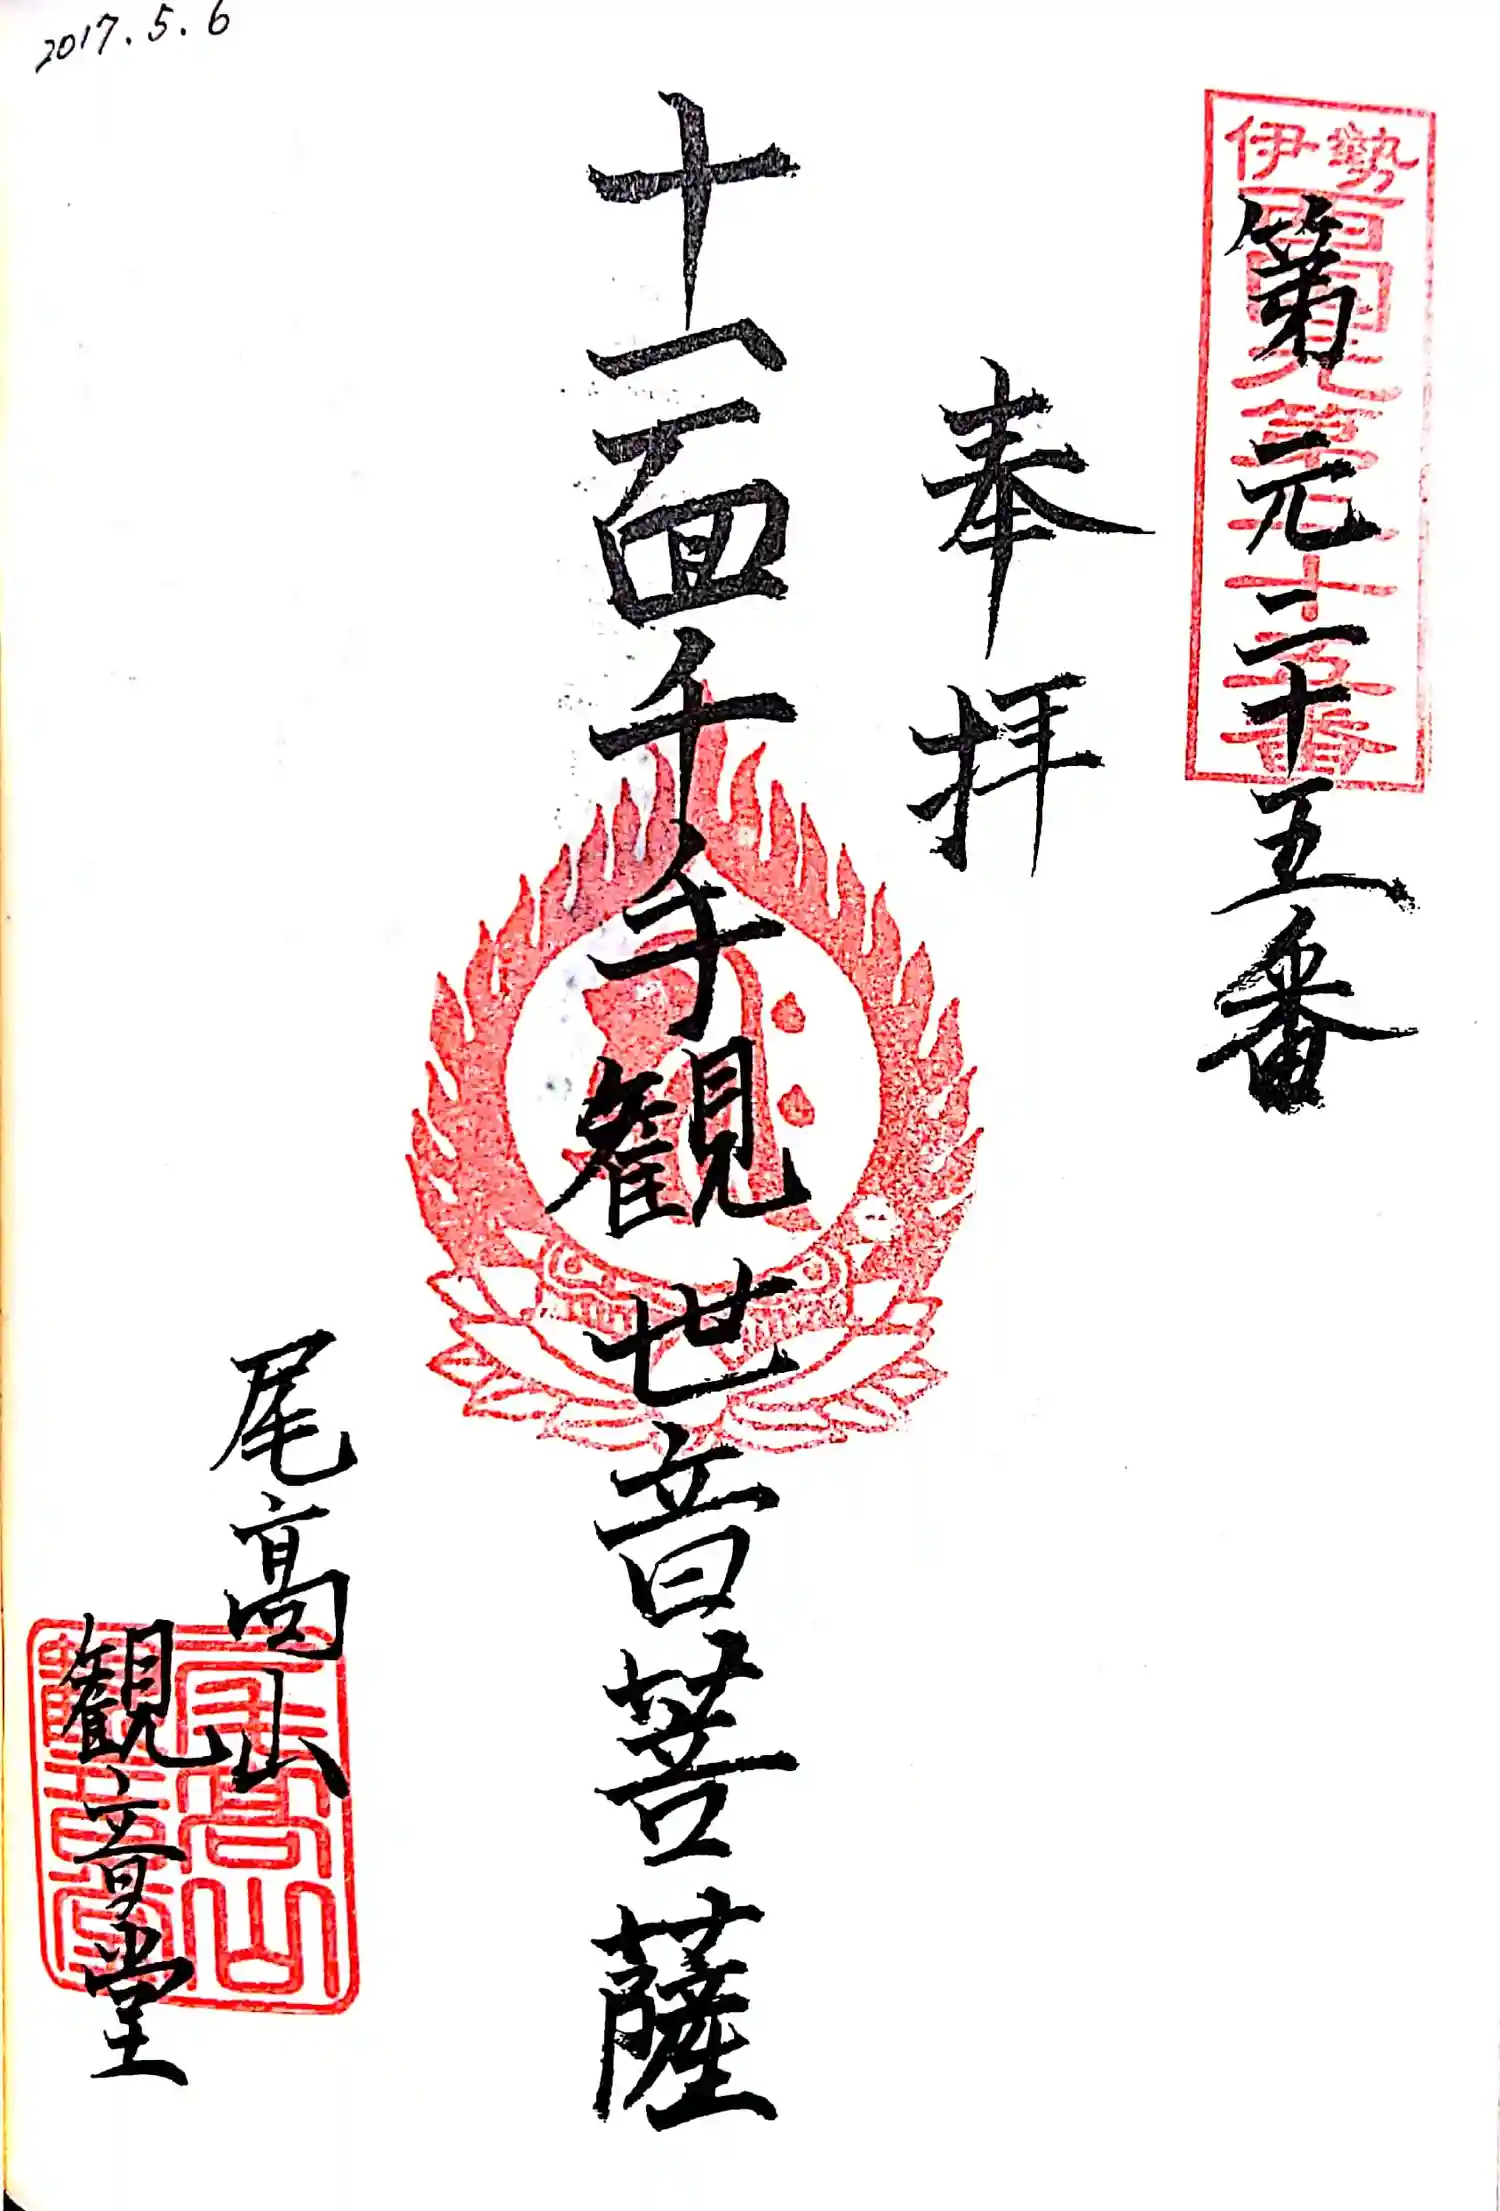 2017.5.6
伊勢
西国元第二十五番
第元二十五番
奉拝
十一面千手観世音菩薩
尾高山
観音堂
尾高山
観音堂